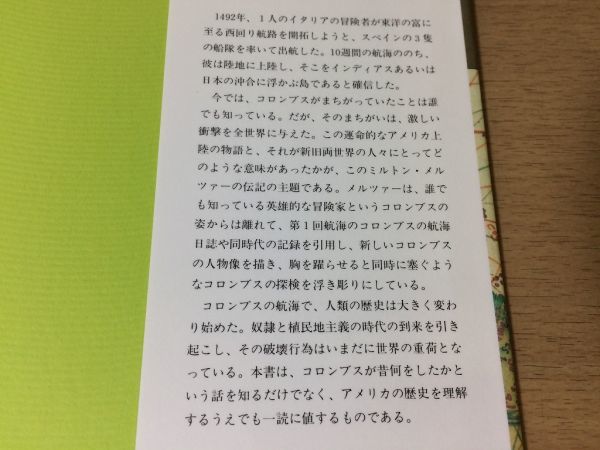 1492年、1人のイタリアの冒険者が東洋の富に
至る西回り航路を開拓しようと、スペインの3隻
の船隊を率いて出航した。10週間の航海ののち、
彼は陸地に上陸し、そこをインディアスあるいは
日本の沖合に浮かぶ島であると確信した。
今では、コロンブスがまちがっていたことは誰
でも知っている。だが、そのまちがいは、激しい
衝撃を全世界に与えた。この運命的なアメリカ上
陸の物語と、それが新旧両世界の人々にとってど
のような意味があったかが、このミルトン・メル
ツァーの伝記の主題である。メルツァーは、誰で
も知っている英雄的な冒険家というコロンブスの
姿からは離れて、第1回航海のコロンブスの航海
日誌や同時代の記録を引用し、新しいコロンブス
の人物像を描き、胸を躍らせると同時に塞ぐよう
なコロンブスの探検を浮き彫りにしている。
コロンブスの航海で、人類の歴史は大きく変わ
り始めた。奴隷と植民地主義の時代の到来を引き
起こし、その破壊行為はいまだに世界の重荷とな
っている。本書は、コロンブスが昔何をしたかと
いう話を知るだけでなく、アメリカの歴史を理解
するうえでも一読に値するものである。